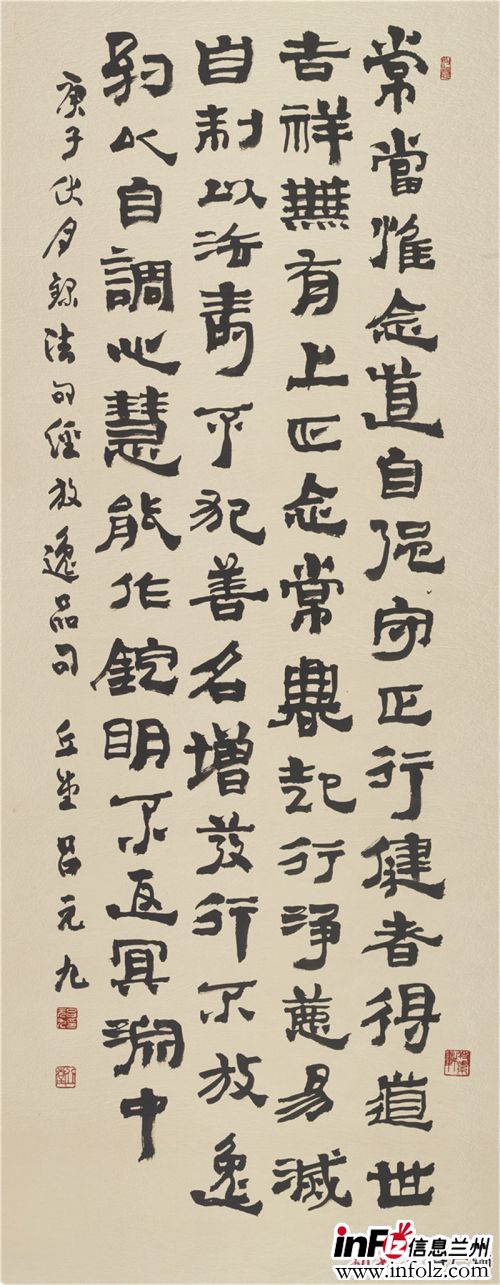 常當惟念道自強守正行健者得道世
吉祥無有上正念常興起行淨惡易滅
自制以法壽不犯善名增發行不放逸
約以自調心慧能作錠明不返冥淵中
庚子伏月錄法句經放逸品句 丘堂吕元九
inFlz 信息兰州
www.infolz.com